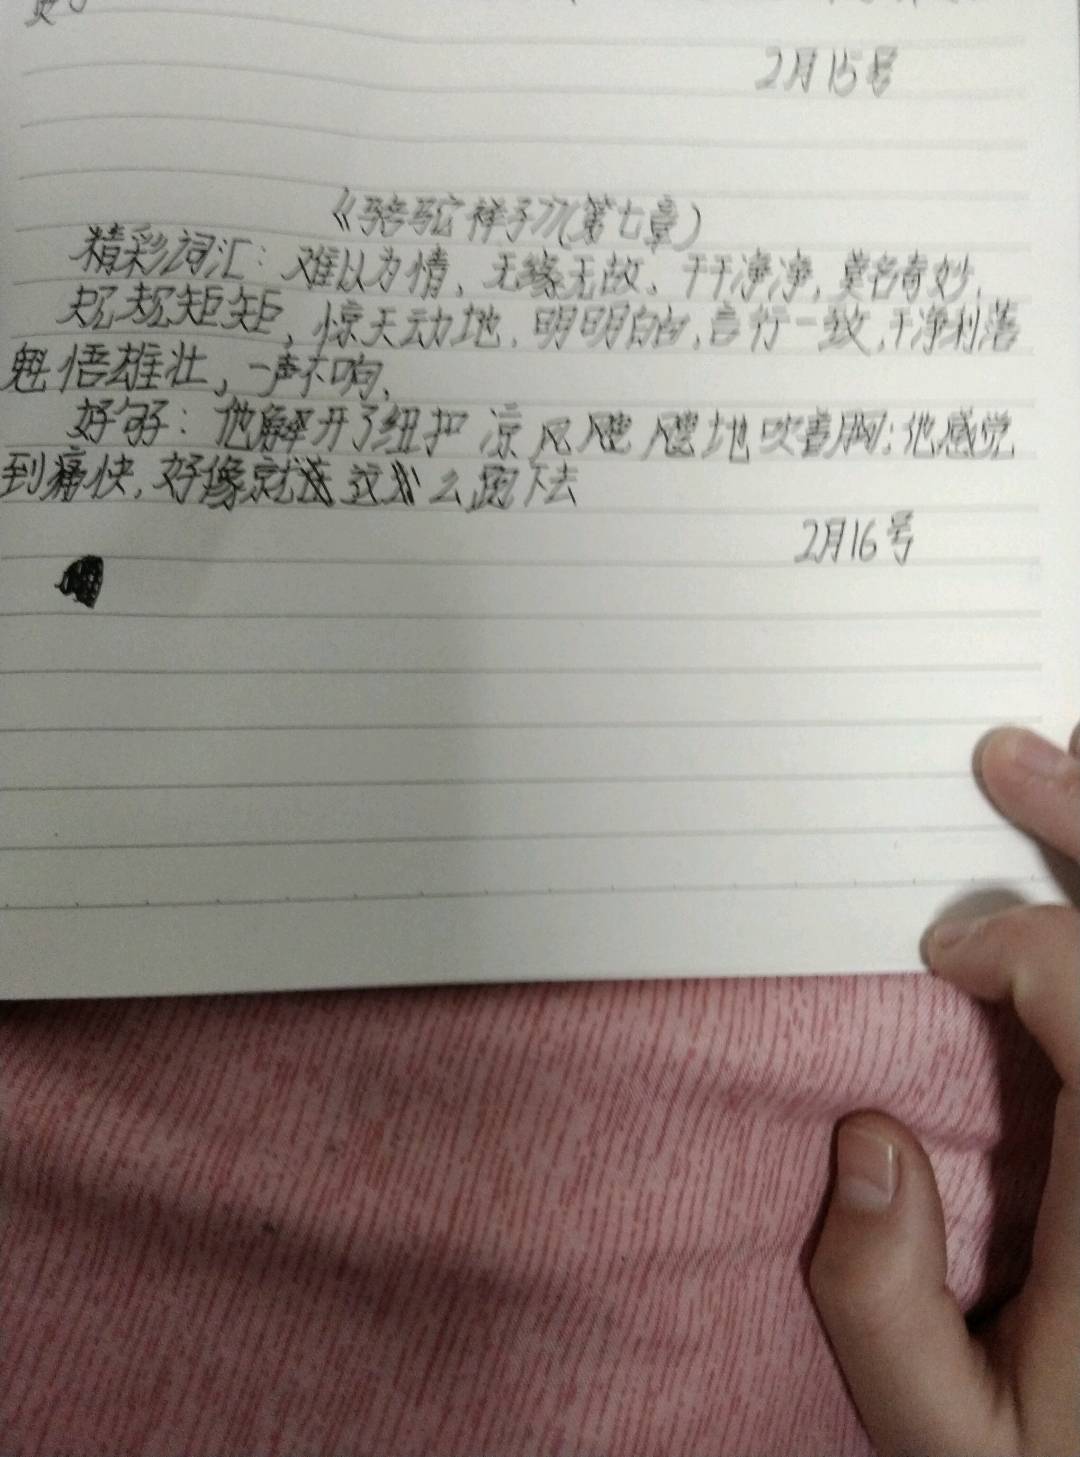 2月15号
《骆驼祥子》(第七章)
精彩词汇：难以为情、无缘无故、干干净净、莫名奇妙、
规规矩矩、惊天动地、明明白白、言行一致、干净利落
魁悟雄壮、一声不响、
好句：他解开了纽扣 凉风飕飕地吹着胸；他感觉
到痛快，好像就这么跑下去
2月16号